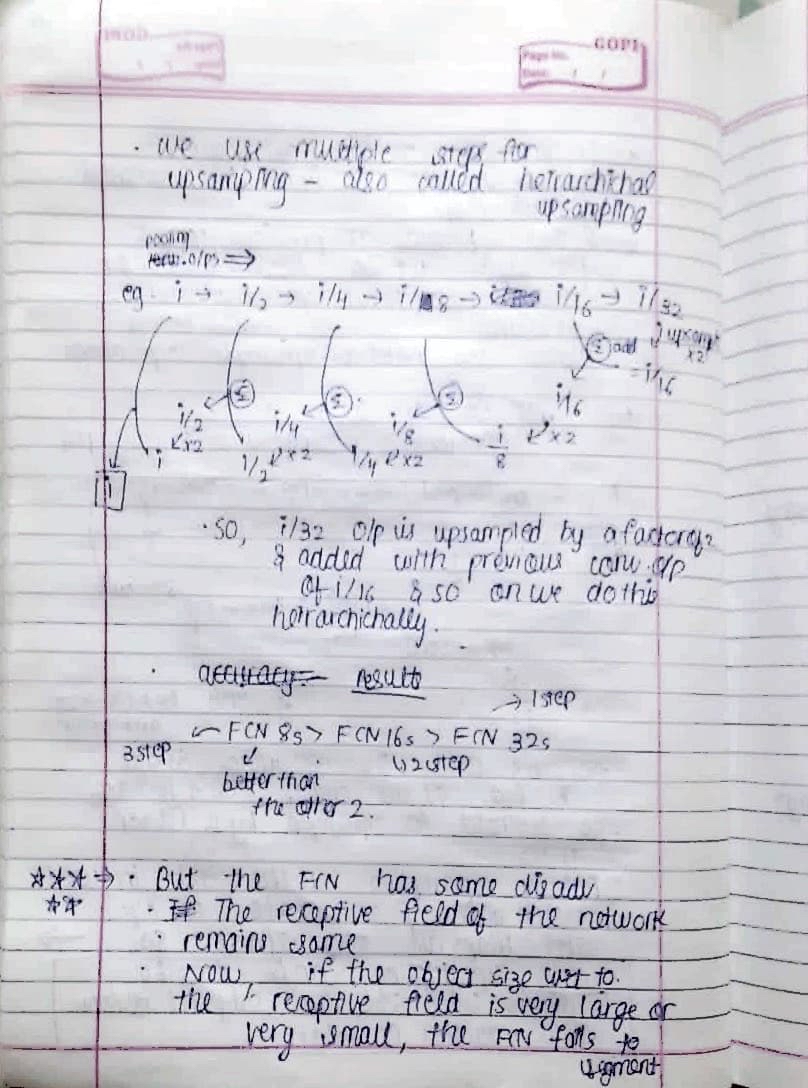 GOPI
Page No.
Date: / /
• We use multiple steps for
upsampling – also called heirarchichal
upsampling
pooling
o/ps ⇒
eg. i → i/2 → i/4 → i/8 → i/16 → i/32
↓ upsample
x2
Σ add
= i/16
i/16
i/2 Σ i/4 Σ i/8 Σ
i x2 i/2 x2 i/4 x2 i/8 x2
i
• so, i/32 o/p is upsampled by a factor of 2
& added with previous conv. o/p
of i/16 & so on we do this
heirarchichally.
• accuracy = results
→ 1 step
← FCN 8s > FCN 16s > FCN 32s
3 step ↓ ↳ 2 step
better than
the other 2.
☆☆☆ → • But the FCN has some disadv
☆☆ • If The receptive field of the network
• remains same
• Now, if the object size wrt to.
the receptive field is very large or
very small, the FCN fails to
segment